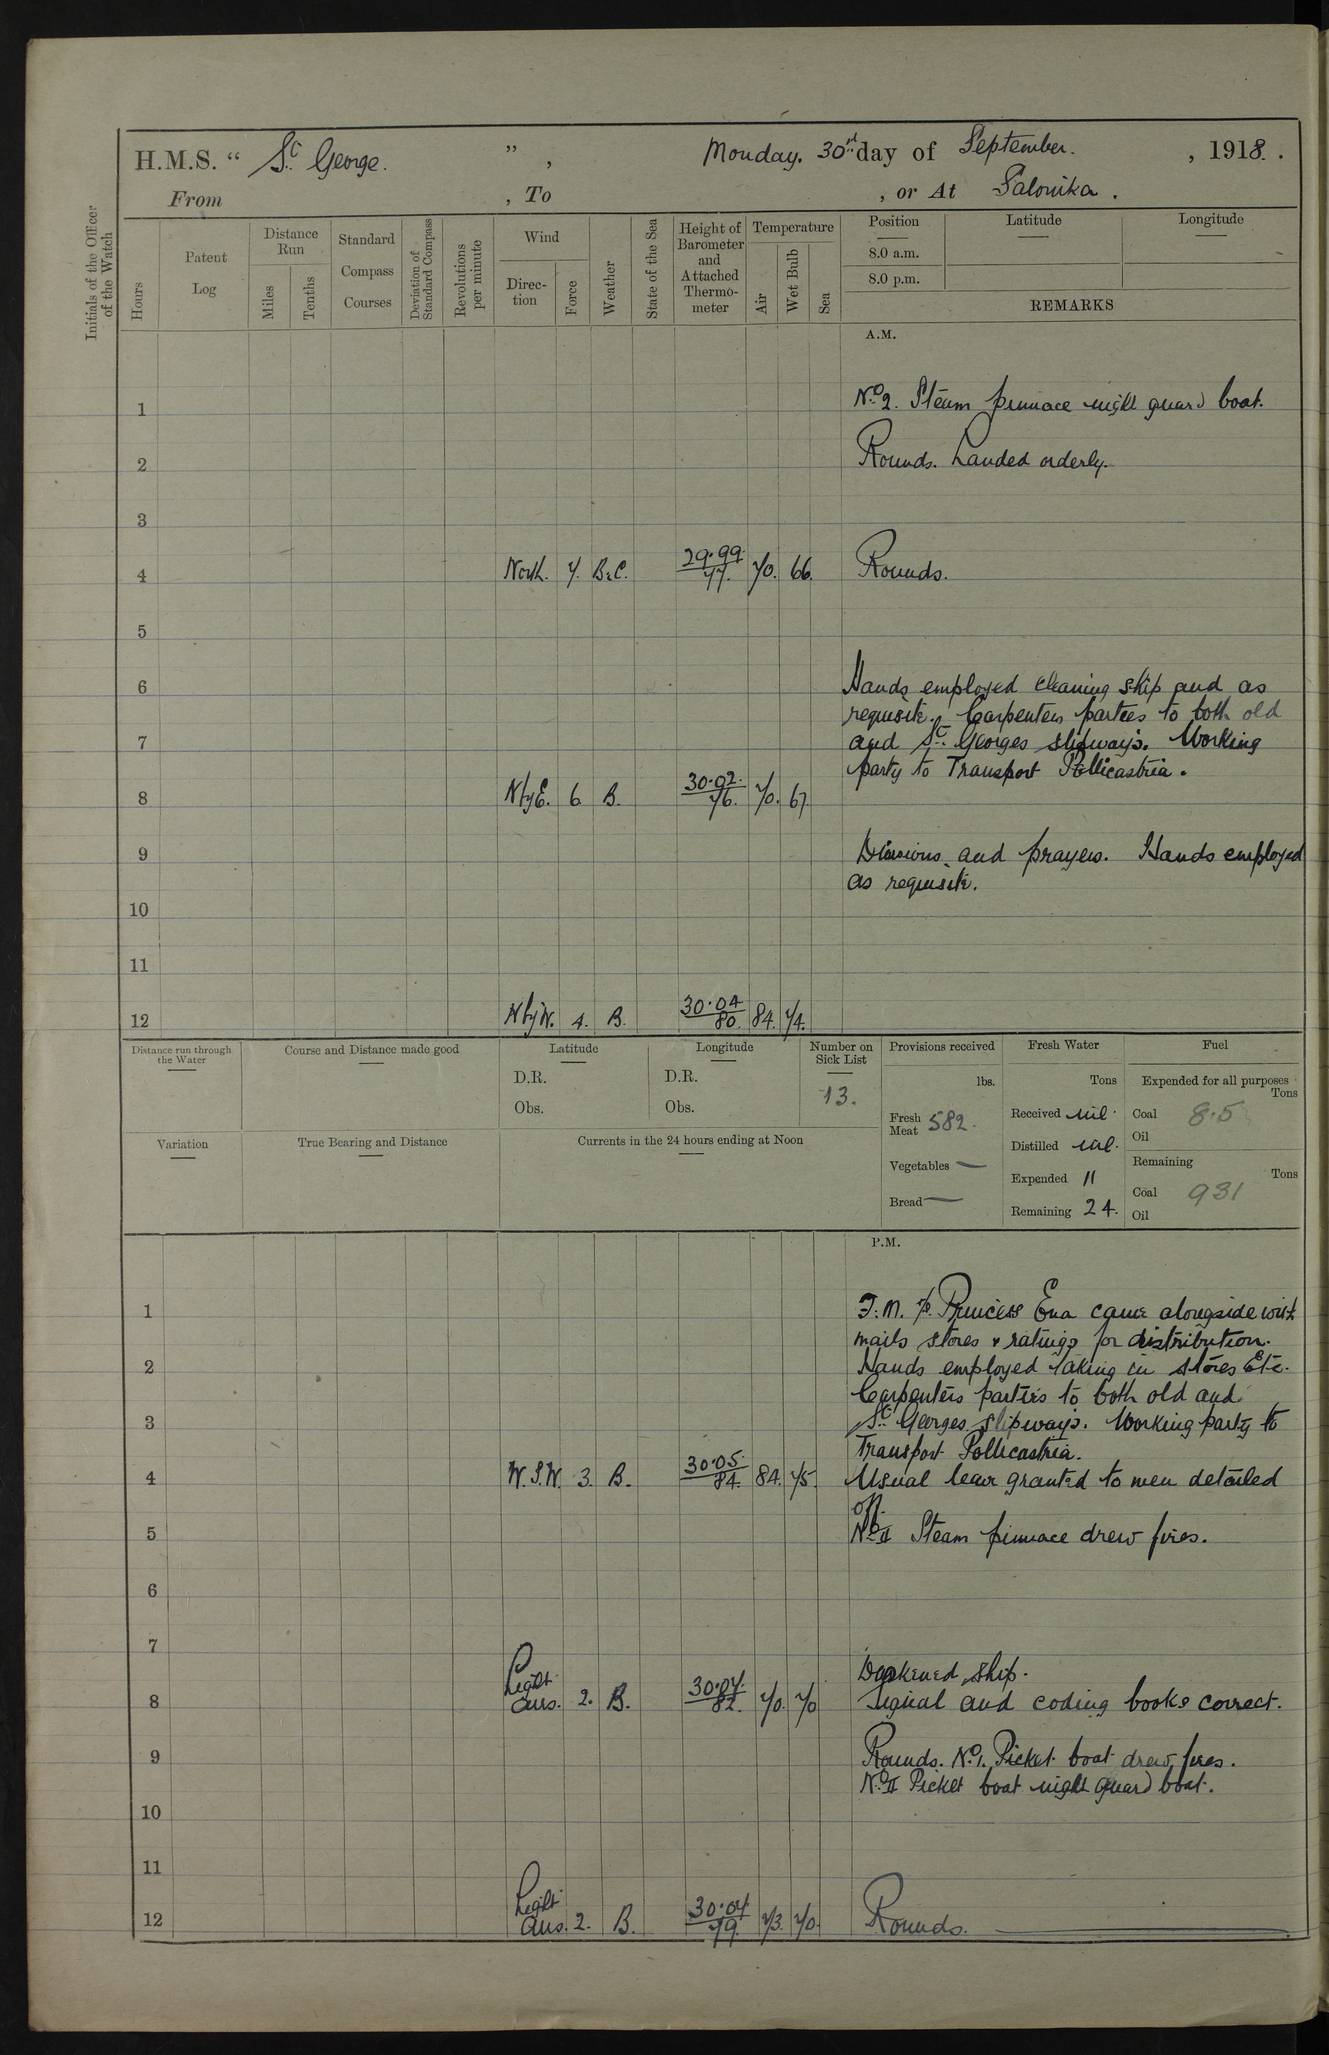 H.M.S. “ St. George. ” , Monday. 30th day of September. , 1918. .
From , To , or At Salonika .
Initials of the Officer of the Watch
Hours
Patent Log
Distance Run
Miles
Tenths
Standard Compass Courses
Deviation of Standard Compass
Revolutions per minute
Wind
Direction
Force
Weather
State of the Sea
Height of Barometer and Attached Thermometer
Temperature
Air
Wet Bulb
Sea
Position Latitude Longitude
8.0 a.m.
8.0 p.m.
REMARKS
A.M.
1 No. 2. Steam pinnace night guard boat.
2 Rounds. Landed orderly.
3
4 North. 7. B.C. 29.99. 77. 70. 66. Rounds.
5
6 Hands employed cleaning ship and as
requisite. Carpenters parties to both old
7 and St. Georges slipways. Working
party to Transport Pollicastria.
8 N by E. 6 B. 30.02. 76. 70. 67
9 Divisions and prayers. Hands employed
as requisite.
10
11
12 N by W. 4. B. 30.04 80. 84. 74.
Distance run through the Water
Course and Distance made good
Latitude
D.R.
Obs.
Longitude
D.R.
Obs.
Number on Sick List
13.
Variation
True Bearing and Distance
Currents in the 24 hours ending at Noon
Provisions received
lbs.
Fresh Meat 582.
Vegetables —
Bread —
Fresh Water
Tons
Received nil.
Distilled nil.
Expended 11
Remaining 24.
Fuel
Expended for all purposes
Tons
Coal 8.5
Oil
Remaining
Tons
Coal 931
Oil
P.M.
1 Princess Ena came alongside with
mails stores & ratings for distribution.
2 Hands employed taking in stores Etc.
Carpenters parties to both old and
3 St. Georges slipways. Working party to
Transport Pollicastria.
4 W.S.W. 3. B. 30.05. 84. 84. 75. Usual leave granted to men detailed
off.
5 No. II Steam pinnace drew fires.
6
7
Darkened ship.
8 Light airs. 2. B. 30.07. 82. 70. 70 Signal and coding books correct.
9 Rounds. No. 1. Picket boat drew fires.
No. II Picket boat night guard boat.
10
11
12 Light airs. 2. B. 30.07 79. 73. 70. Rounds.